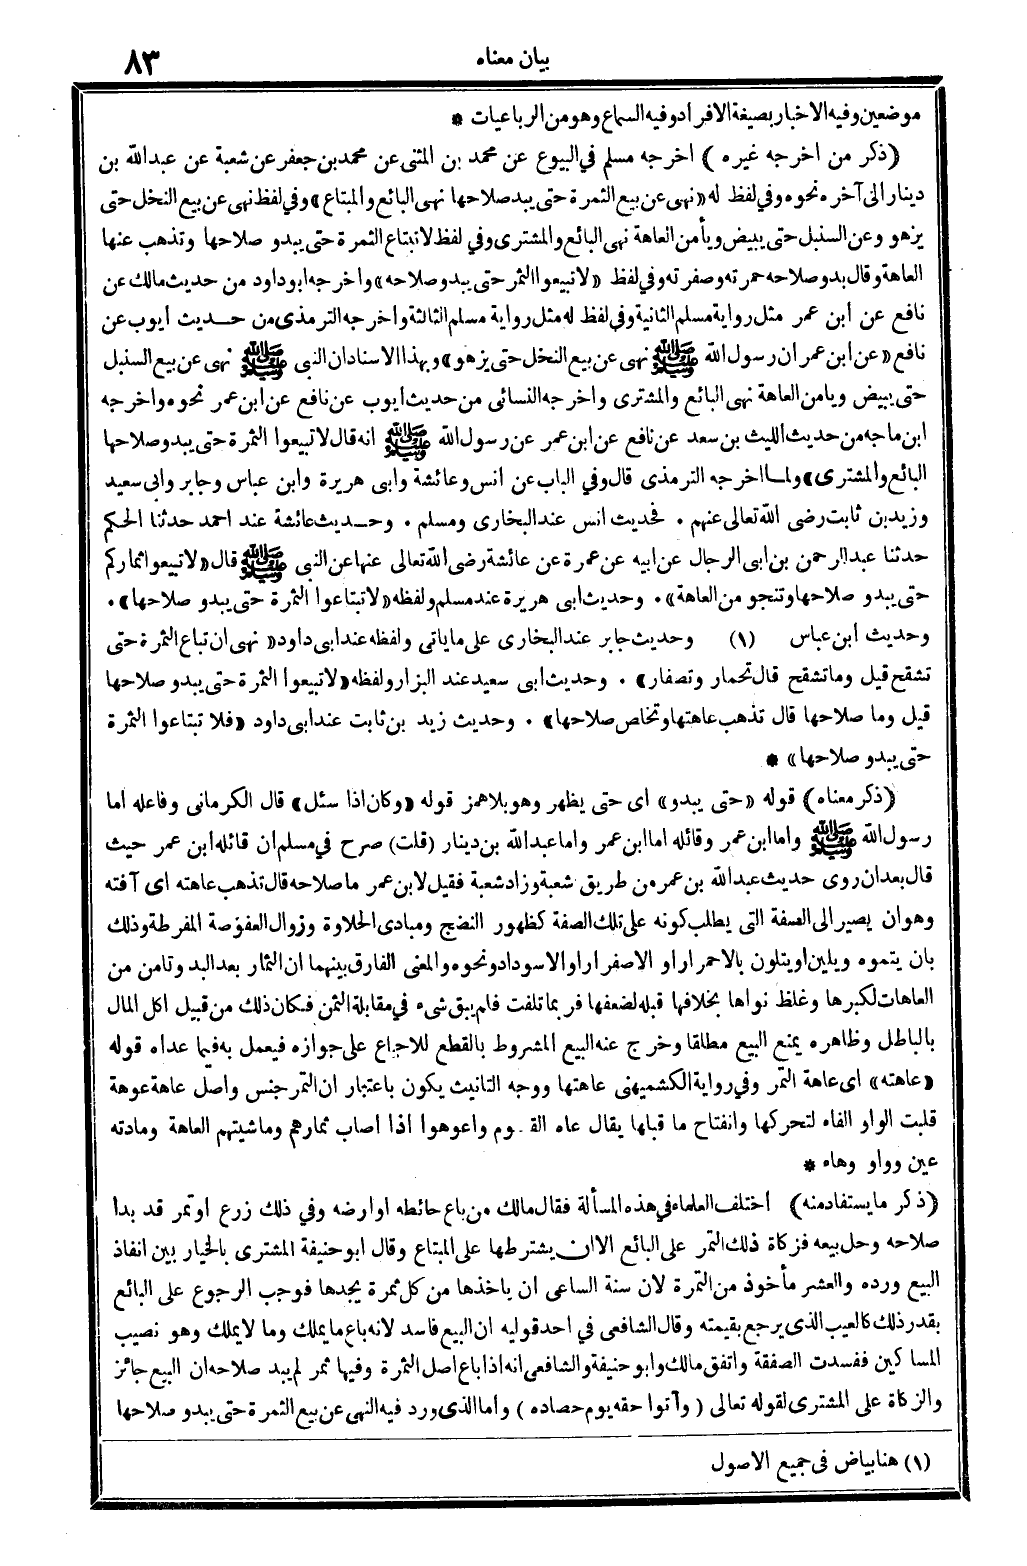 بيان معناه
٨٣
موضعين وفيه الاخبار بصيغة الافراد وفيه السماع وهو من الرباعيات *
(ذكر من اخرجه غيره) اخرجه مسلم في البيوع عن محمد بن المثنى عن محمد بن جعفر عن شعبة عن عبدالله بن
دينار الى آخره نحوه وفي لفظ له «نهى عن بيع الثمرة حتى يبد صلاحها نهى البائع والمبتاع» وفي لفظ نهى عن بيع النخل حتى
يزهو وعن السنبل حتى يبيض ويأمن العاهة نهى البائع والمشترى وفي لفظ لا تبتاع الثمرة حتى يبدو صلاحها وتذهب عنها
العاهة وقال بدو صلاحه حمرته وصفرته وفي لفظ «لا تبيعوا الثمر حتى يبدو صلاحه» واخرجه ابو داود من حديث مالك عن
نافع عن ابن عمر مثل رواية مسلم الثانية وفي لفظ له مثل رواية مسلم الثالثة واخرجه الترمذى من حديث ايوب عن
نافع «عن ابن عمر ان رسول الله ﷺ نهى عن بيع النخل حتى يزهو» وبهذا الاسناد ان النبى ﷺ نهى عن بيع السنبل
حتى يبيض ويامن العاهة نهى البائع والمشترى واخرجه النسائى من حديث ايوب عن نافع عن ابن عمر نحوه واخرجه
ابن ماجه من حديث الليث بن سعد عن نافع عن ابن عمر عن رسول الله ﷺ انه قال لا تبيعوا الثمرة حتى يبدو صلاحها
البائع والمشترى» ولما اخرجه الترمذى قال وفي الباب عن انس وعائشة وابى هريرة وابن عباس وجابر وابى سعيد
وزيد بن ثابت رضى الله تعالى عنهم . فحديث انس عند البخارى ومسلم . وحديث عائشة عند احمد حدثنا الحكم
حدثنا عبد الرحمن بن ابى الرجال عن ابيه عن عمرة عن عائشة رضى الله تعالى عنها عن النبى ﷺ قال «لا تبيعوا ثماركم
حتى يبدو صلاحها وتنجو من العاهة» . وحديث ابى هريرة عند مسلم ولفظه «لا تبتاعوا الثمرة حتى يبدو صلاحها» .
وحديث ابن عباس (١) وحديث جابر عند البخارى على ما ياتى ولفظه عند ابى داود «نهى ان تباع الثمرة حتى
تشقح قيل وما تشقح قال تحمار وتصفار» . وحديث ابى سعيد عند البزار ولفظه «لا تبيعوا الثمرة حتى يبدو صلاحها
قيل وما صلاحها قال تذهب عاهتها وتخلص صلاحها» . وحديث زيد بن ثابت عند ابى داود «فلا تبتاعوا الثمرة
حتى يبدو صلاحها» *
(ذكر معناه) قوله «حتى يبدو» اى حتى يظهر وهو بلا همز قوله «وكان اذا سئل» قال الكرمانى وفاعله اما
رسول الله ﷺ واما ابن عمر وقائله اما ابن عمر واما عبد الله بن دينار (قلت) صرح في مسلم ان قائله ابن عمر حيث
قال بعد ان روى حديث عبد الله بن عمر من طريق شعبة وزاد شعبة فقيل لابن عمر ما صلاحه قال تذهب عاهته اى آفته
وهو ان يصير الى الصفة التى يطلب كونه على تلك الصفة كظهور النضج ومبادى الحلاوة وزوال العفوصة المفرطة وذلك
بان يتموه ويلين او يتلون بالاحمرار او الاصفرار او الاسوداد ونحوه والمعنى الفارق بينهما ان الثمار بعد البدو تامن من
العاهات لكبرها وغلظ نواها بخلافها قبله لضعفها فربما تلفت فلم يبق شىء في مقابلة الثمن فكان ذلك من قبيل اكل المال
بالباطل وظاهره يمنع البيع مطلقا وخرج عنه البيع المشروط بالقطع للاجماع على جوازه فيعمل به فيما عداه قوله
«عاهته» اى عاهة الثمر وفي رواية الكشميهنى عاهتها ووجه التانيث يكون باعتبار ان الثمر جنس واصل عاهة عوهة
قلبت الواو الفاه لتحركها وانفتاح ما قبلها يقال عاه القوم واعوهوا اذا اصاب ثمارهم وماشيتهم العاهة ومادته
عين وواو وهاء *
(ذكر ما يستفاد منه) اختلف العلماء في هذه المسألة فقال مالك من باع حائطه او ارضه وفي ذلك زرع او ثمر قد بدا
صلاحه وحل بيعه فزكاة ذلك الثمر على البائع الا ان يشترطها على المبتاع وقال ابو حنيفة المشترى بالخيار بين انفاذ
البيع ورده والعشر مأخوذ من الثمرة لان سنة الساعى ان ياخذها من كل ثمرة يجدها فوجب الرجوع على البائع
بقدر ذلك كالعيب الذى يرجع بقيمته وقال الشافعى في احد قوليه ان البيع فاسد لانه باع ما يملك وما لا يملك وهو نصيب
المساكين ففسدت الصفقة واتفق مالك وابو حنيفة والشافعى انه اذا باع اصل الثمرة وفيها ثمر لم يبد صلاحه ان البيع جائز
والزكاة على المشترى لقوله تعالى (وآتوا حقه يوم حصاده) واما الذى ورد فيه النهى عن بيع الثمرة حتى يبدو صلاحها
(١) هنا بياض فى جميع الاصول